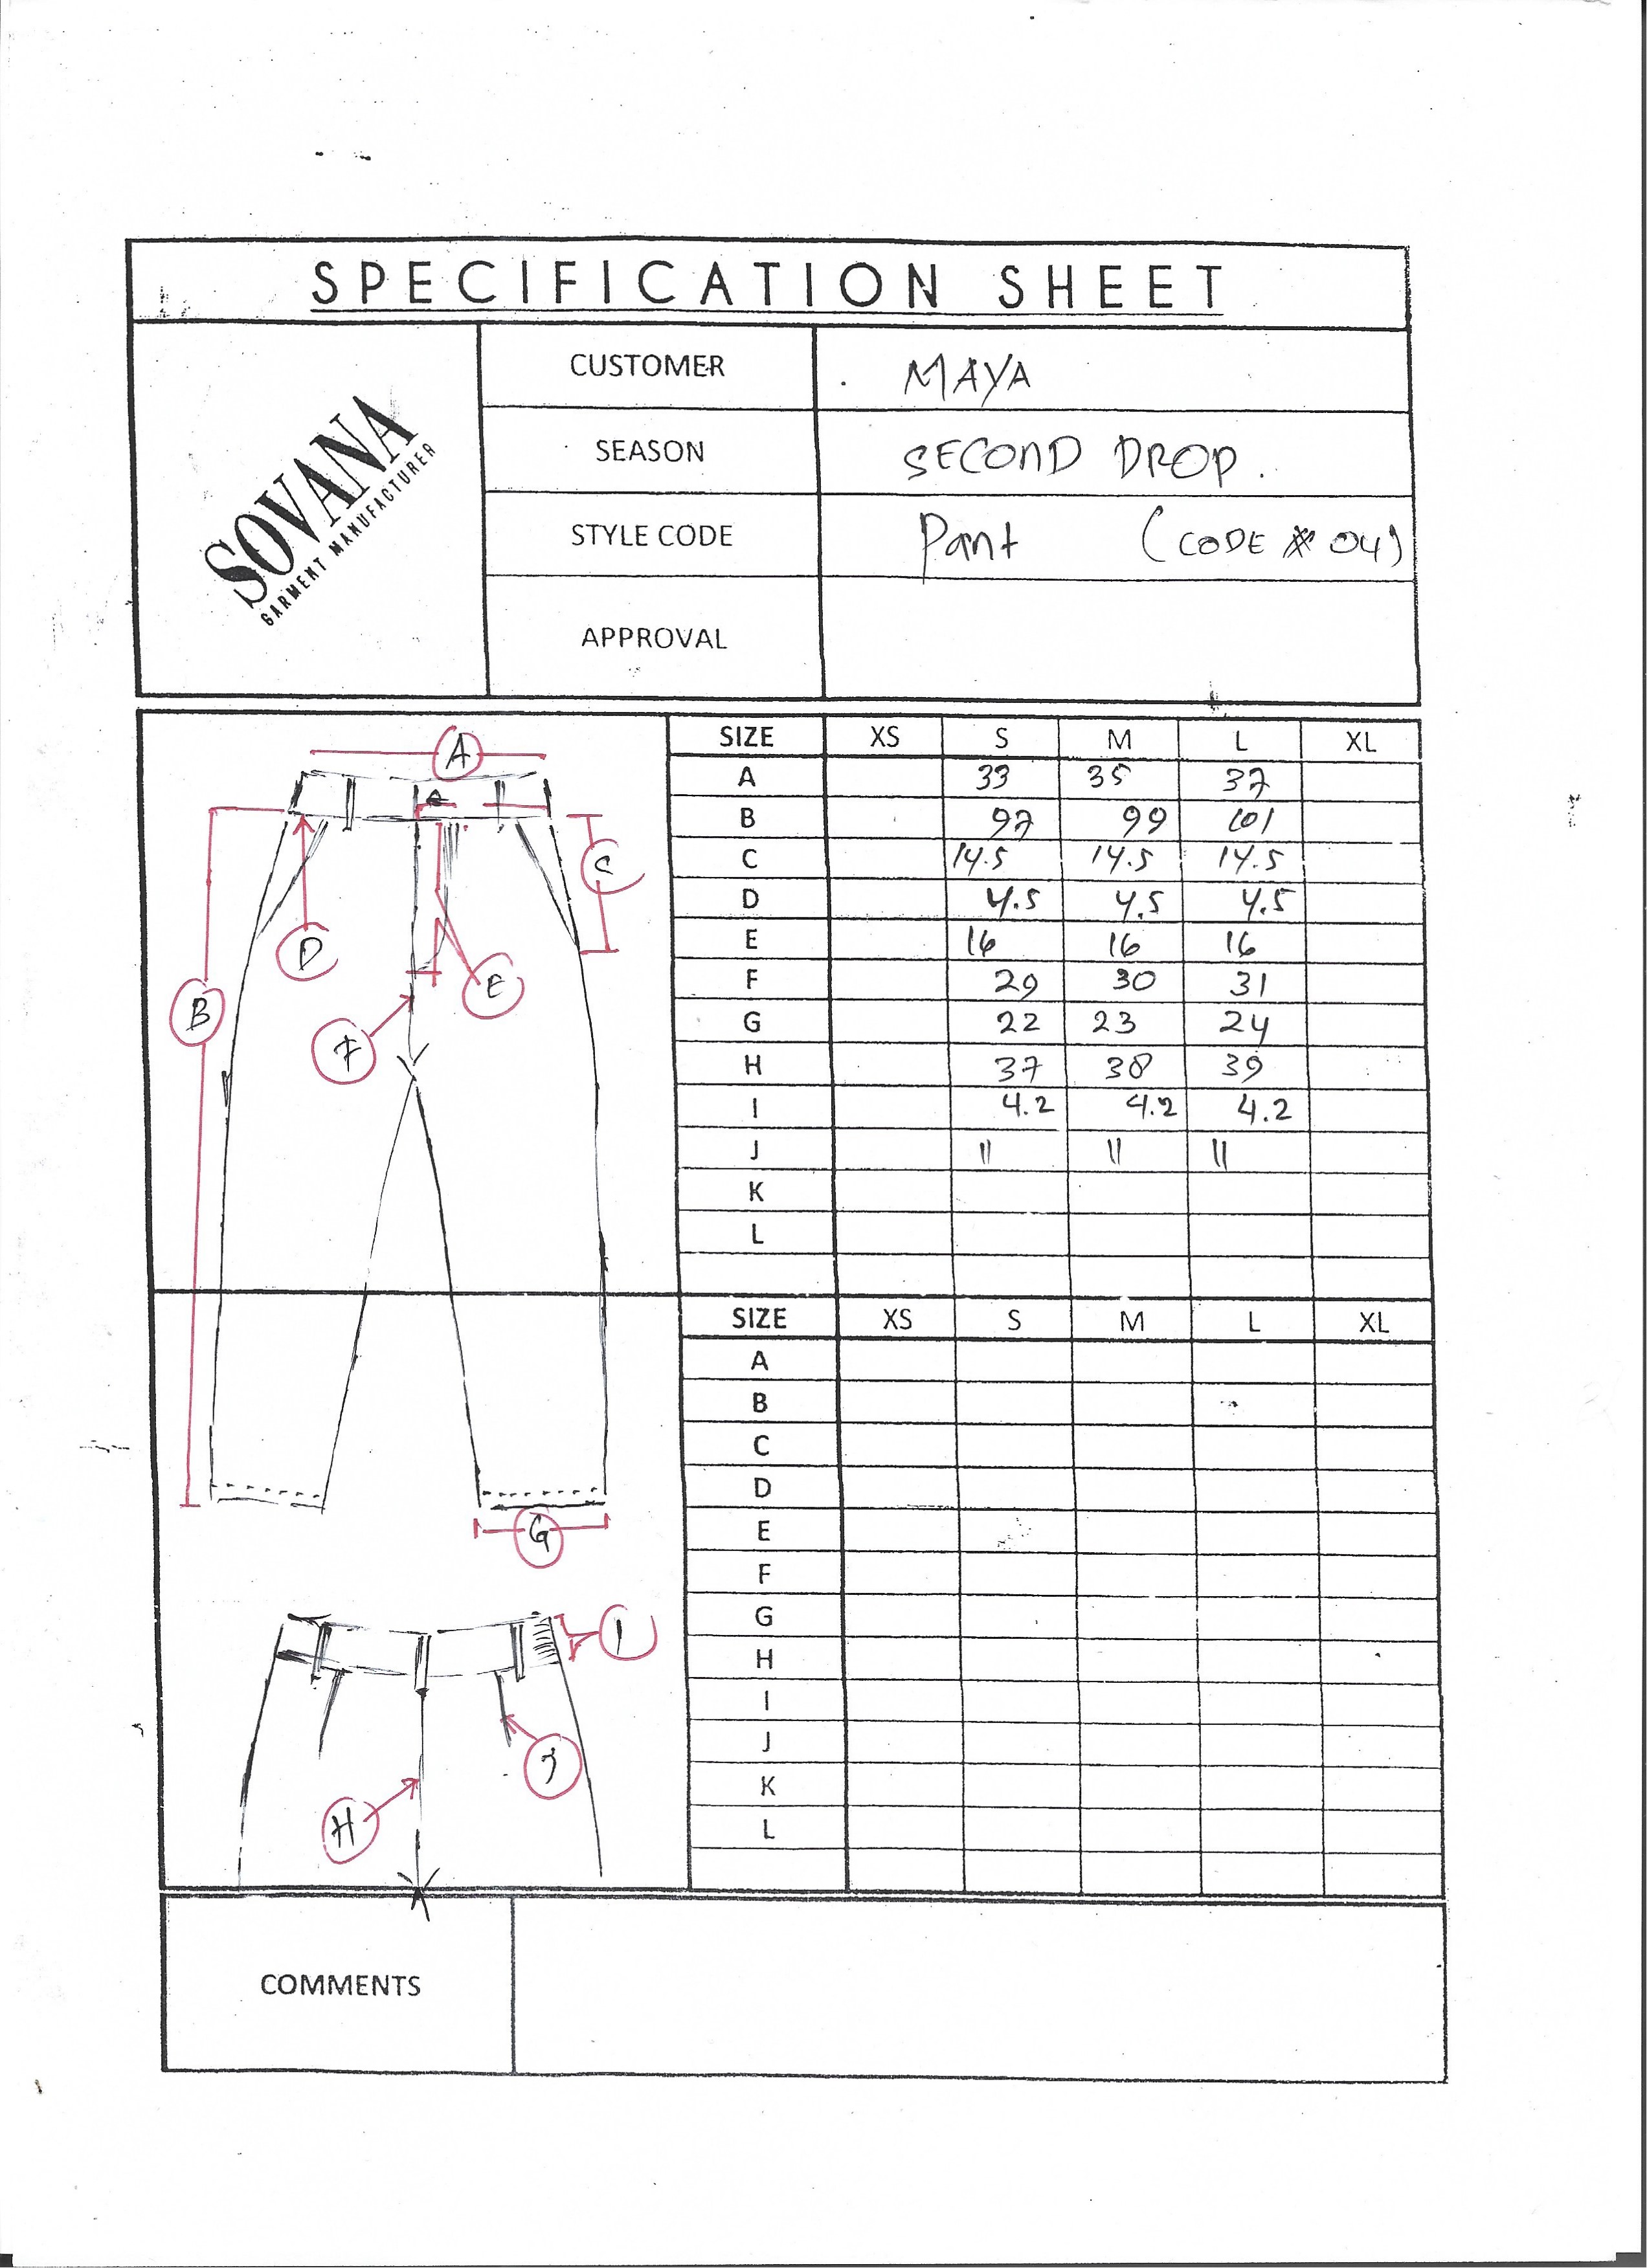 SPECIFICATION SHEET
SOVANA
GARMENT MANUFACTURER
CUSTOMER MAYA
SEASON SECOND DROP.
STYLE CODE Pant (CODE # 04)
APPROVAL
A
B
C
D
E
F
G
I
J
H
SIZE XS S M L XL
A 33 35 37
B 97 99 101
C 14.5 14.5 14.5
D 4.5 4.5 4.5
E 16 16 16
F 29 30 31
G 22 23 24
H 37 38 39
I 4.2 4.2 4.2
J 11 11 11
K
L
SIZE XS S M L XL
A
B
C
D
E
F
G
H
I
J
K
L
COMMENTS